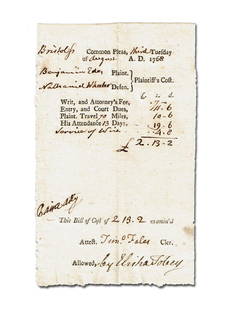 Bristol ss Common Pleas, third Tuesday
of August A. D. 1768
Benjamin Plaint.
Nathaniel Wheeler Defen. } Plaintiff's Cost.
Writ, and Attorney's Fee,
Entry, and Court Dues
Plaint. Travel 70 Miles, 10-6
His Attendance 13 Days, 19-6
Service of Writ
£ 2-13-2
This Bill of Cost of 2-13-2 examin'd
Attest. Timo. Fales Cler.
Allowed, by Elisha Tobey